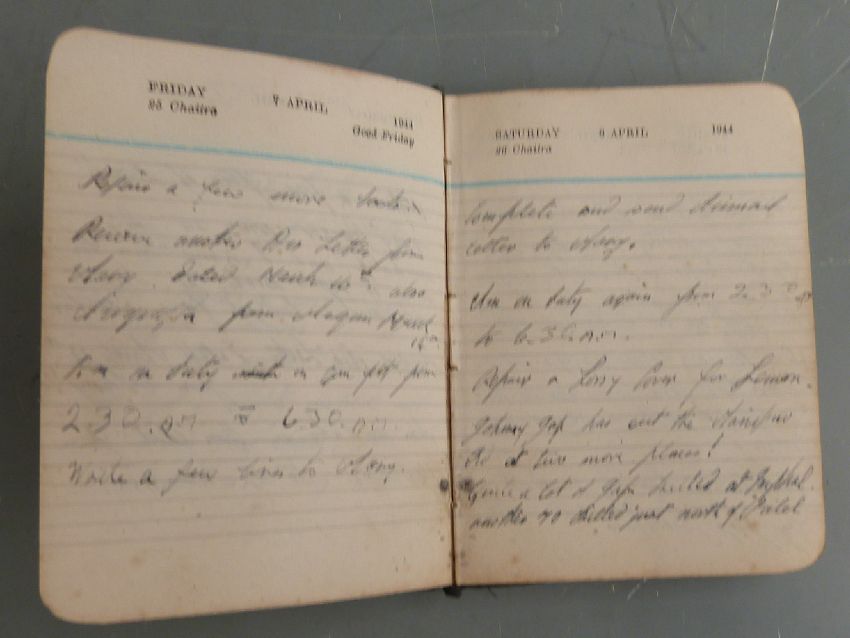 FRIDAY 7 APRIL 1944
25 Chaitra Good Friday
Repair a few more
Receive another Letter from
Mary. Dated March also
from March
Am on duty in gun pit from
2.30. to 6.30.
Write a few lines to Mary.
SATURDAY 8 APRIL 1944
26 Chaitra
Complete and send Airmail
letter to Mary.
Am on duty again from 2.30
to 6.30.
Repair a Lorry Cover for
Johnny Jap has cut the
Rd at two more places!
Quite a lot of Japs killed at
another 70 killed just north of